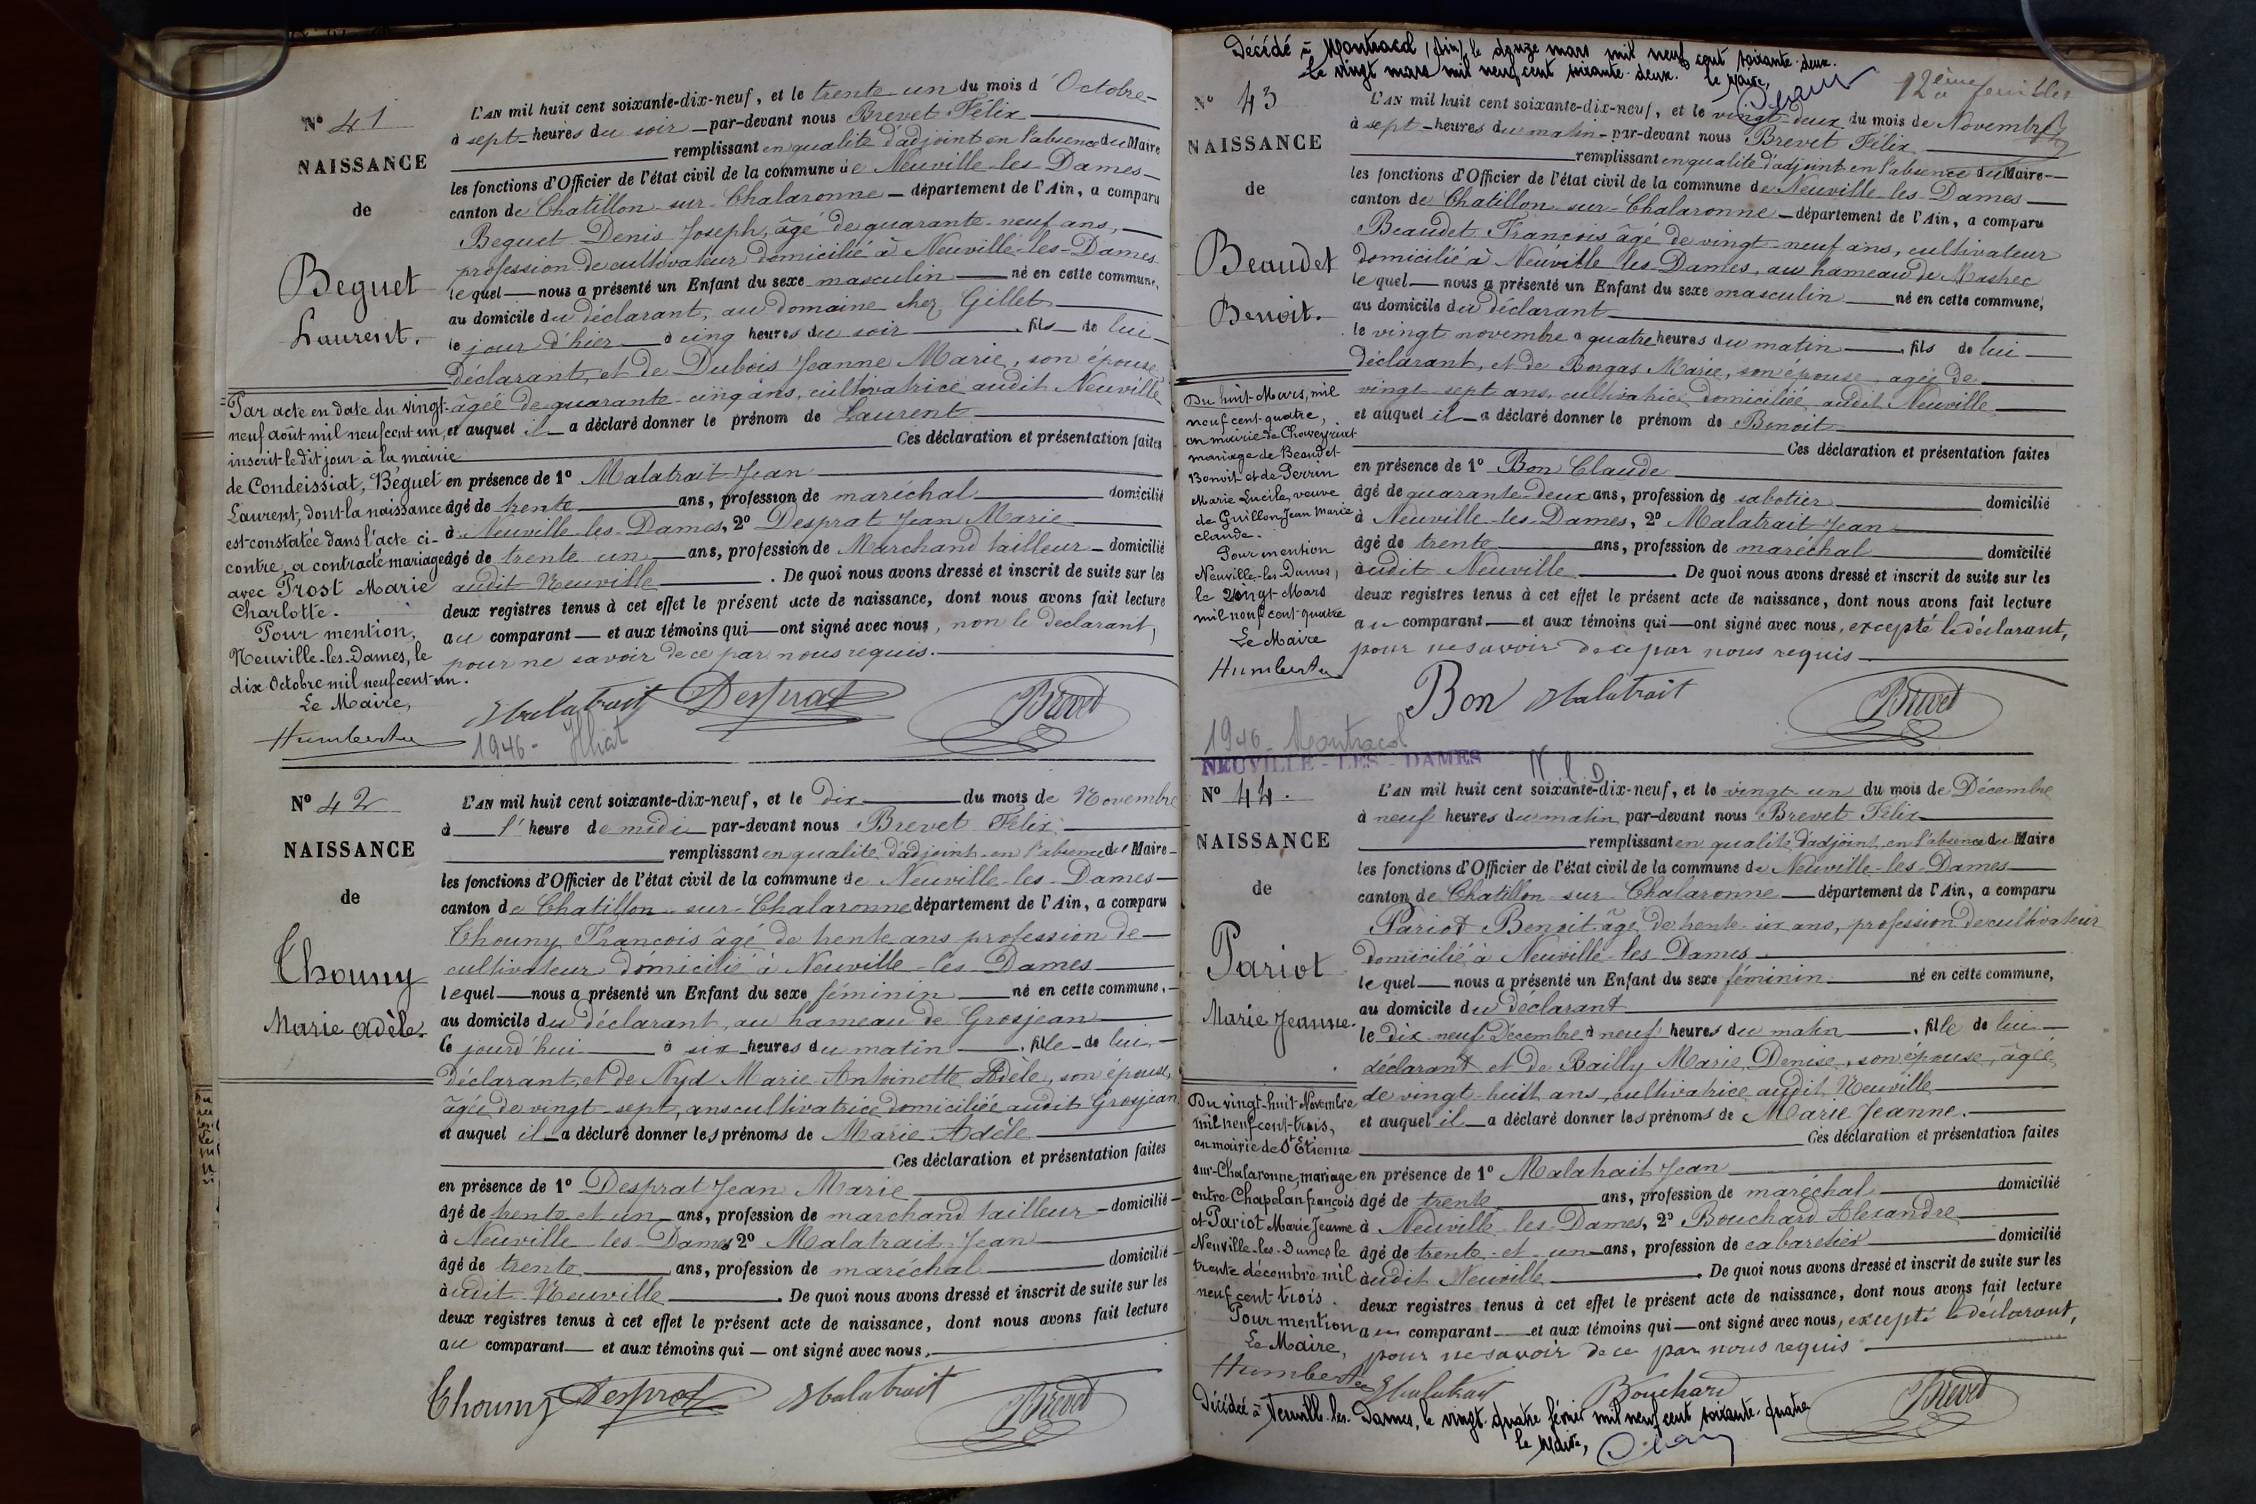 N° 41
NAISSANCE
de
Beguet
Laurent.
L'AN mil huit cent soixante-dix-neuf, et le trente-un du mois d'Octobre
à sept heures du soir par-devant nous Brevet Félix
remplissant en qualité d'adjoint en l'absence du Maire
les fonctions d'Officier de l'état civil de la commune de Neuville-les-Dames
canton de Chatillon-sur-Chalaronne département de l'Ain, a comparu
Beguet Denis Joseph, âgé de quarante-neuf ans,
profession de cultivateur domicilié à Neuville-les-Dames
lequel nous a présenté un Enfant du sexe masculin né en cette commune,
au domicile du déclarant, au domaine chez Gillet
le jour d'hier à cinq heures du soir, fils de lui
déclarant, et de Dubois Jeanne Marie, son épouse
âgée de quarante-cinq ans, cultivatrice audit Neuville
et auquel il a déclaré donner le prénom de Laurent
Ces déclaration et présentation faites
en présence de 1° Malatrait Jean
âgé de trente ans, profession de maréchal domicilié
à Neuville-les-Dames, 2° Desprat Jean Marie
âgé de trente un ans, profession de Marchand tailleur domicilié
audit Neuville. De quoi nous avons dressé et inscrit de suite sur les
deux registres tenus à cet effet le présent acte de naissance, dont nous avons fait lecture
au comparant et aux témoins qui ont signé avec nous, non le déclarant,
pour ne savoir de ce par nous requis.
Malatrait Desprat Brevet
1946 - Illiat
Par acte en date du vingt-
neuf août mil neuf cent un,
inscrit le dit jour à la mairie
de Condeissiat, Béguet
Laurent, dont la naissance
est constatée dans l'acte ci-
contre, a contracté mariage
avec Prost Marie
Charlotte.
Pour mention,
Neuville-les-Dames, le
dix Octobre mil neuf cent un.
Le Maire,
Humbert
N° 42
NAISSANCE
de
Thouny
Marie Adèle.
L'AN mil huit cent soixante-dix-neuf, et le dix du mois de Novembre
à l'heure de midi par-devant nous Brevet Félix
remplissant en qualité d'adjoint en l'absence du Maire
les fonctions d'Officier de l'état civil de la commune de Neuville-les-Dames
canton de Chatillon-sur-Chalaronne département de l'Ain, a comparu
Thouny François âgé de trente ans profession de
cultivateur domicilié à Neuville-les-Dames
lequel nous a présenté un Enfant du sexe féminin né en cette commune,
au domicile du déclarant, au hameau de Grosjean
ce jourd'hui à six heures du matin, fille de lui
déclarant, et de Nyd Marie Antoinette Adèle, son épouse,
âgée de vingt-sept, ans cultivatrice domiciliée audit Grosjean
et auquel il a déclaré donner les prénoms de Marie Adèle
Ces déclaration et présentation faites
en présence de 1° Desprat Jean Marie
âgé de trente et un ans, profession de marchand tailleur domicilié
à Neuville-les-Dames 2° Malatrait Jean
âgé de trente ans, profession de maréchal domicilié
audit Neuville. De quoi nous avons dressé et inscrit de suite sur les
deux registres tenus à cet effet le présent acte de naissance, dont nous avons fait lecture
au comparant et aux témoins qui ont signé avec nous.
Thouny Desprat Malatrait Brevet
Décédé à Montracol (Ain) le douze mars mil neuf cent soixante-deux.
Le vingt mars mil neuf cent soixante-deux. le Maire,
12ème feuillet
N° 43
NAISSANCE
de
Beaudet
Benoit.
L'AN mil huit cent soixante-dix-neuf, et le vingt-deux du mois de Novembre
à sept heures du matin par-devant nous Brevet Félix
remplissant en qualité d'adjoint en l'absence du Maire
les fonctions d'Officier de l'état civil de la commune de Neuville-les-Dames
canton de Chatillon-sur-Chalaronne département de l'Ain, a comparu
Beaudet François âgé de vingt-neuf ans, cultivateur
domicilié à Neuville-les-Dames, au hameau de
lequel nous a présenté un Enfant du sexe masculin né en cette commune,
au domicile du déclarant
le vingt novembre à quatre heures du matin, fils de lui
déclarant, et de Borgas Marie, son épouse, agée de
vingt-sept ans, cultivatrice, domiciliée audit Neuville
et auquel il a déclaré donner le prénom de Benoit
Ces déclaration et présentation faites
en présence de 1° Bon Claude
âgé de quarante-deux ans, profession de sabotier domicilié
à Neuville-les-Dames, 2° Malatrait Jean
âgé de trente ans, profession de maréchal domicilié
audit Neuville. De quoi nous avons dressé et inscrit de suite sur les
deux registres tenus à cet effet le présent acte de naissance, dont nous avons fait lecture
au comparant et aux témoins qui ont signé avec nous, excepté le déclarant,
pour ne savoir de ce par nous requis
Bon Malatrait Brevet
Du huit Mars, mil
neuf cent quatre,
en mairie de Chaveyriat
mariage de Beaudet
Benoit et de Perrin
Marie Lucile, veuve
de Guillon Jean Marie
claude.
Pour mention
Neuville-les-Dames,
le vingt Mars
mil neuf cent quatre
Le Maire
Humbert
1946 - Montracol
NEUVILLE - LES - DAMES
N l D
N° 44.
NAISSANCE
de
Pariot
Marie Jeanne.
L'AN mil huit cent soixante-dix-neuf, et le vingt-un du mois de Décembre
à neuf heures du matin par-devant nous Brevet Félix
remplissant en qualité d'adjoint en l'absence du Maire
les fonctions d'Officier de l'état civil de la commune de Neuville-les-Dames
canton de Chatillon-sur-Chalaronne département de l'Ain, a comparu
Pariot Benoit âgé de trente-six ans, profession de cultivateur
domicilié à Neuville-les-Dames
lequel nous a présenté un Enfant du sexe féminin né en cette commune,
au domicile du déclarant
le dix-neuf Décembre à neuf heures du matin, fille de lui
déclarant et de Bailly Marie Denise, son épouse, âgée
de vingt-huit ans, cultivatrice audit Neuville
et auquel il a déclaré donner les prénoms de Marie Jeanne.
Ces déclaration et présentation faites
en présence de 1° Malatrait Jean
âgé de trente ans, profession de maréchal domicilié
à Neuville-les-Dames, 2° Bouchard Alexandre
âgé de trente-et-un ans, profession de cabaretier domicilié
audit Neuville. De quoi nous avons dressé et inscrit de suite sur les
deux registres tenus à cet effet le présent acte de naissance, dont nous avons fait lecture
au comparant et aux témoins qui ont signé avec nous, excepté le déclarant,
pour ne savoir de ce par nous requis.
Malatrait Bouchard Brevet
Du vingt-huit Novembre
mil neuf cent-trois,
en mairie de St Etienne
sur-Chalaronne, mariage
entre Chapolan françois
et Pariot Marie Jeanne
Neuville-les-Dames le
trente décembre mil
neuf cent trois.
Pour mention
Le Maire,
Humbert
Décédée à Neuville-les-Dames, le vingt-quatre février mil neuf cent soixante-quatre
le Maire,